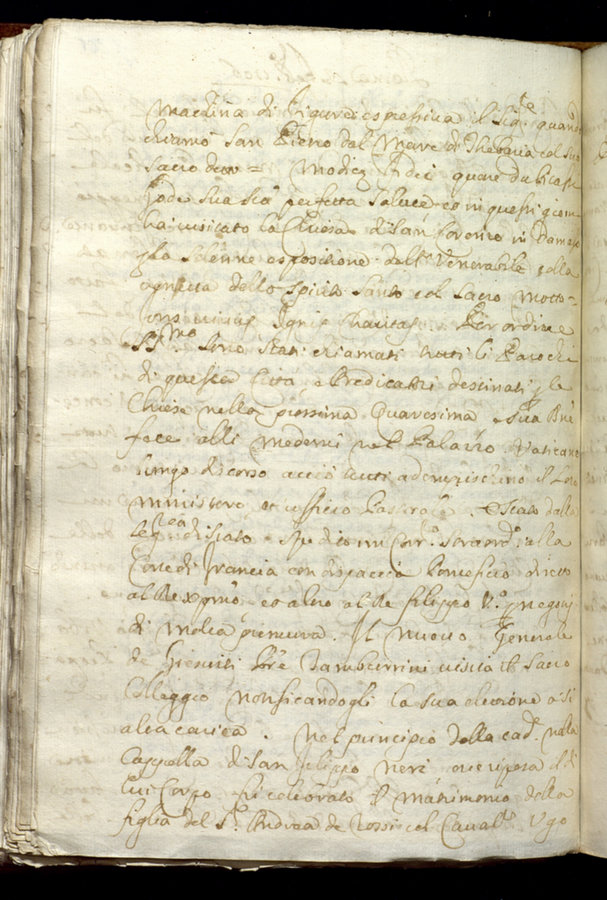 machina di figure espressiva il Sig.re quando
chiamò San Pietro dal Mare di Tiberia col suo
sacro detto = Modicæ fidei quare dubitasti
Gode Sua S.tà perfetta salute et in questi giorni
ha visitato la Chiesa di San Lorenzo in Damaso
la solenne espositione dell' Venerabile colla
dello Spirito Santo col sacro motto
Ignis Charitas. Per ordine
SS.mo sono stati chiamati tutti li Parochi
di questa Città e Predicatori destinati p le
Chiese nella prossima Quaresima e Sua Bne
fece alli medemi nel Palazzo Vaticano
lungo discorso acciò tutti adempischino il loro
ministero, et ufficio Pastorale. È stato dalla
Seg.rea di Stato spedito un Cor.o straord.o alla
Corte di Francia con dispaccio Pontificio diretto
al Re Xpmo et altro al Re Filippo V.o p negotij
di molta premura. Il nuovo Generale
de Giesuiti Pre Tamburrini visita il Sacro
Colleggio notificandogli la sua elettione a sì
alta carica. Nel principio della cad.e nella
Cappella di San Filippo Neri ove riposa il di
lui Corpo fù celebrato il matrimonio della
figlia del S.r Andrea de Rossi col Caval.re Ugo